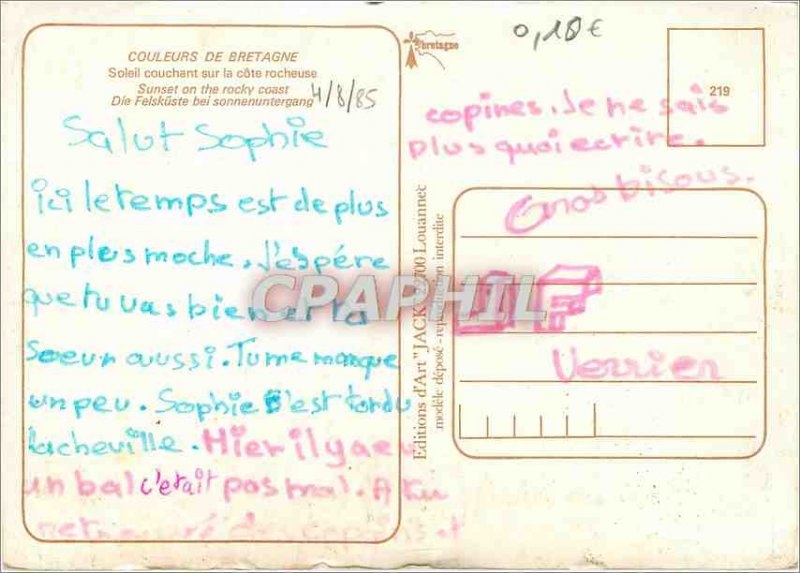 COULEURS DE BRETAGNE
Soleil couchant sur la côte rocheuse
Sunset on the rocky coast
Die Felsküste bei sonnenuntergang
4/8/85
Salut Sophie
ici le temps est de plus
en plus moche. J'espére
que tu vas bien et ta
soeur aussi. Tu me manque
un peu. Sophie s'est tordu
la cheville. Hier il y a eu
un bal c'etait pas mal. A tu
retrouvé des copains et
bretagne
0,10 €
219
copines. Je ne sais
plus quoi ecrire.
Gros bisous.
Verrier
Editions d'Art "JACK" Louannec
modèle déposé - reproduction interdite
CPAPHIL